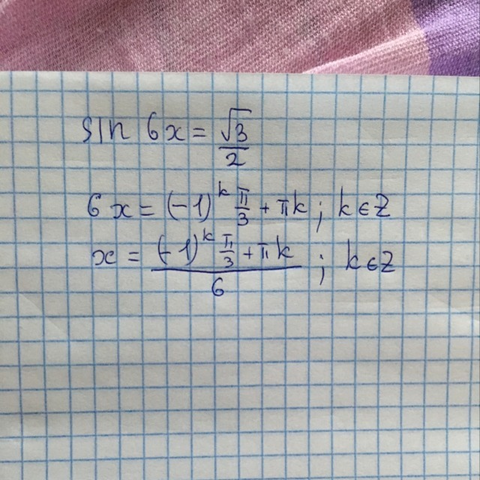 sin 6x = √3/2
6x = (-1)^k π/3 + πk ; k∈Z
x = ((-1)^k π/3 + πk)/6 ; k∈Z